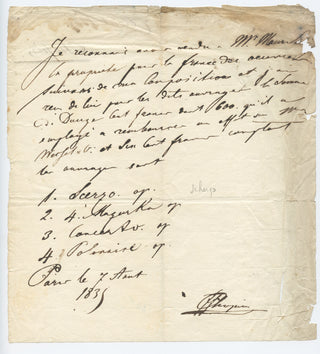 Je reconnais avoir vendu à Mr Maurice
la propriété pour la france des œuvres
suivans de ma Composition et
reçu de lui pour les dits ouvrages la somme
de Douze cent francs dont 600 qu'il a
employé a rembourser un effet
et Six cent francs comptant
les ouvrages sont
1. Scerzo op.
2. 4 Mazurka op
3. Concerto op
4 Polonaise op.
Paris le 7 Aout
1835
Chopin